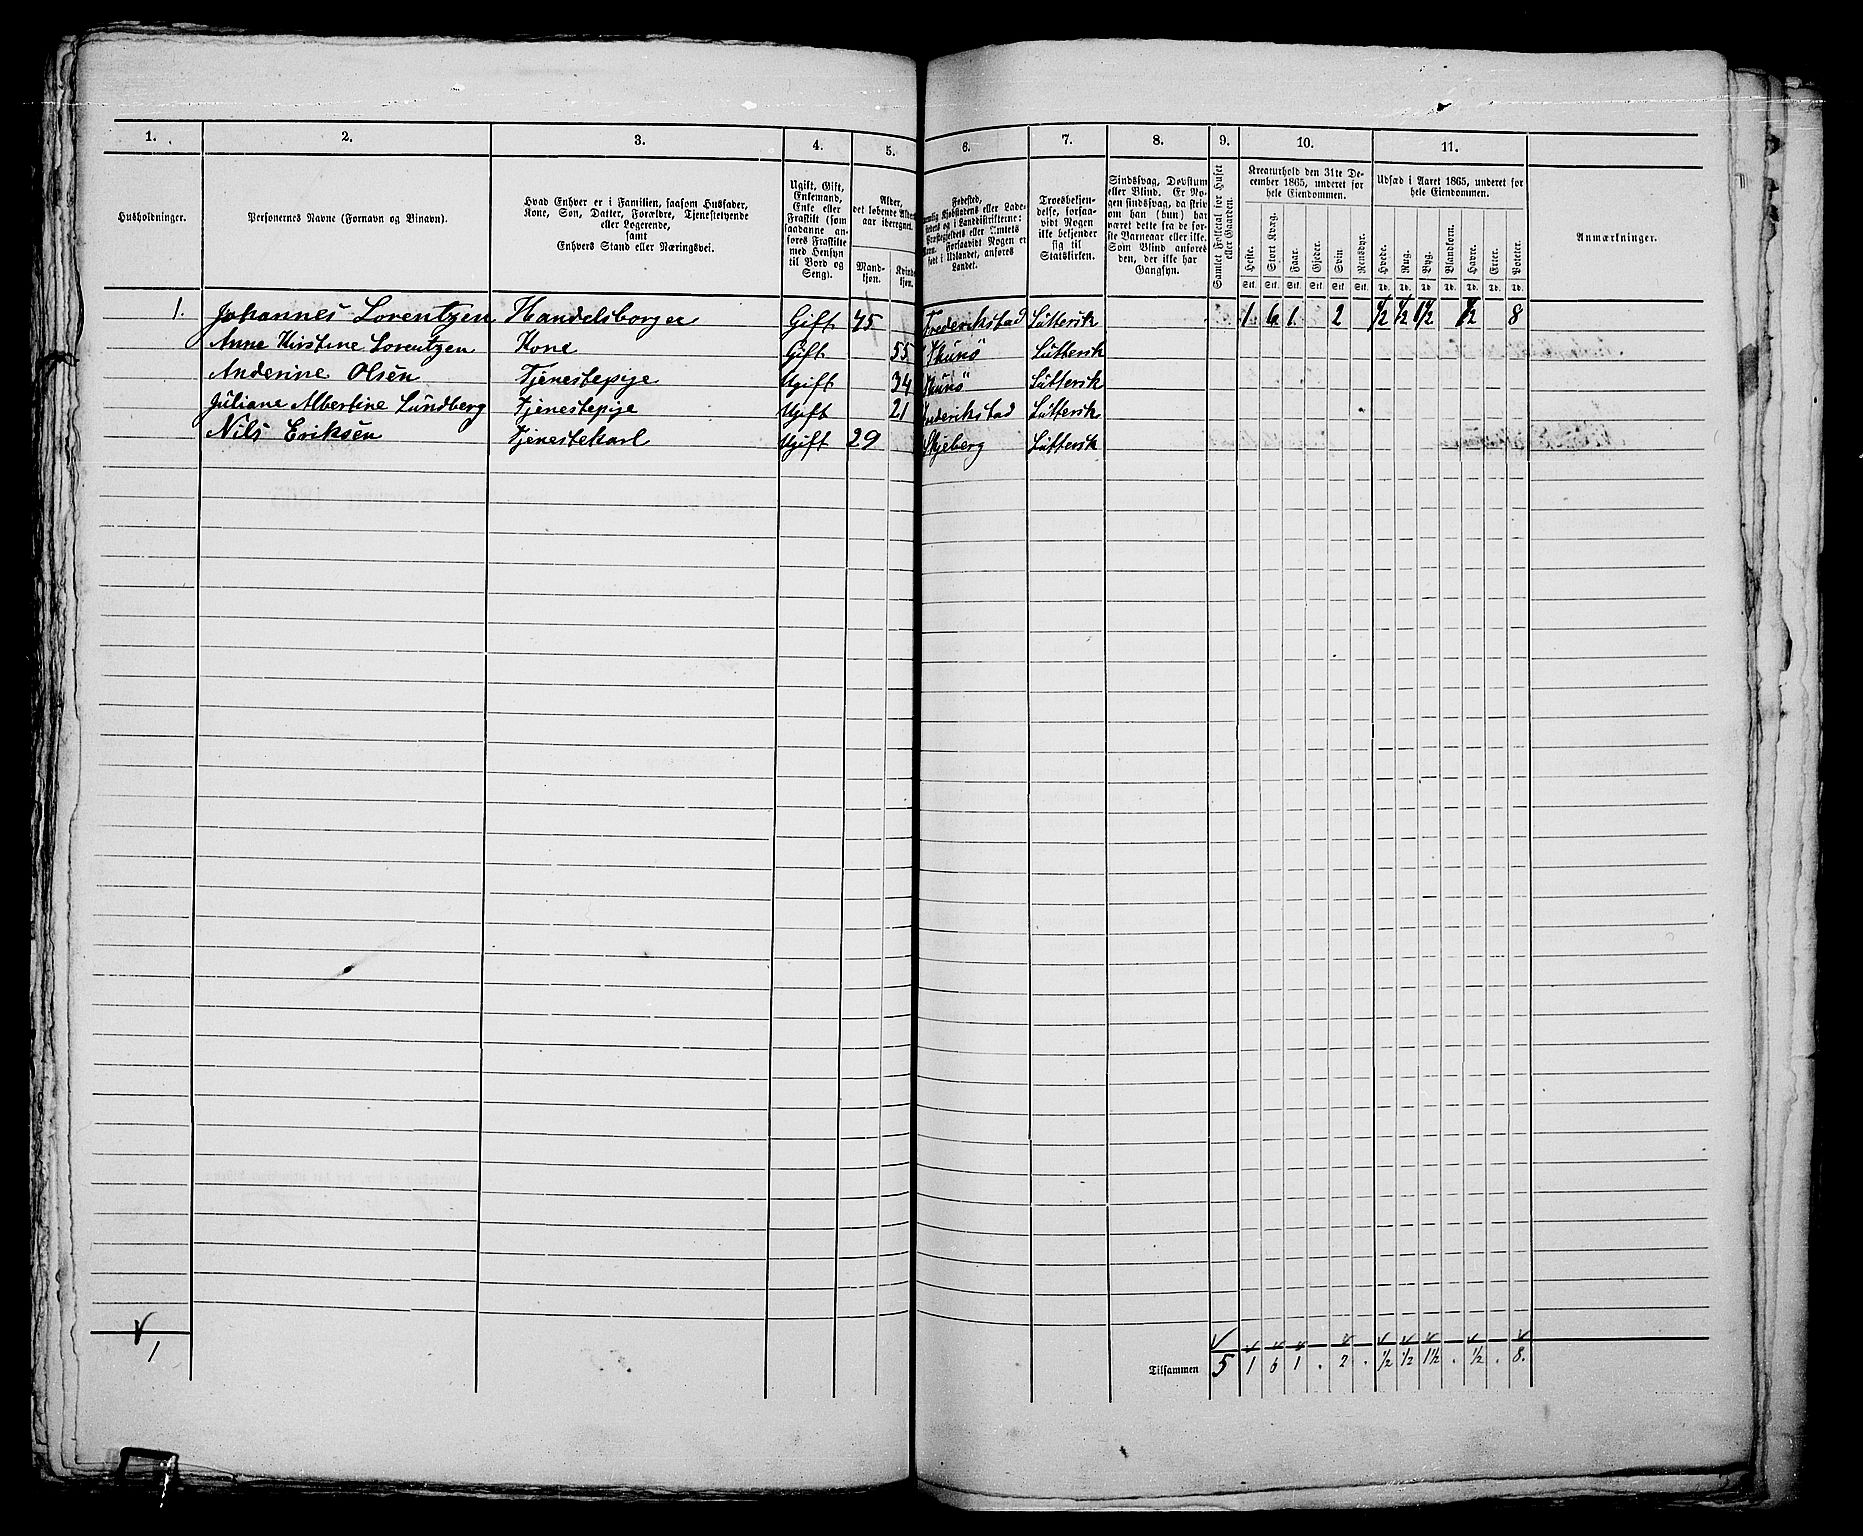 1. 2. 3. 4. 5. 6. 7. 8. 9. 10. 11.
Husholdninger.
Personernes Navne (Fornavn og Binavn).
Hvad Enhver er i Familien, saasom Husfader,
Kone, Søn, Datter, Forældre, Tjenestetyende
eller Logerende,
samt
Enhvers Stand eller Næringsvei.
Ugift, Gift,
Enkemand,
Enke eller
Fraskilt (som
saadanne an-
føres Fraskilte
med Hensyn
til Bord og
Seng).
Alder,
det løbende Alders-
aar iberegnet.
Mand-
kjøn.
Kvind-
kjøn.
Fødested,
Trosbekjen-
delse, forsaa-
vidt Nogen
ikke bekjender
sig til
Statskirken.
Sindssvag, Døvstum
eller Blind. Er No-
gen sindssvag, da skriv
om han (hun) har
været dette fra de før-
ste Barneaar eller ikke.
Som Blind anføres
den, der ikke har
Gangsyn.
Samlet Folketal for Huset
eller Gaarden.
Kreaturhold den 31te De-
cember 1865, underet for
hele Eiendommen.
Heste. Stort Kvæg. Faar. Gjeder. Svin Rensdyr.
Stk. Stk. Stk. Stk. Stk. Stk.
Udsæd i Aaret 1865, underet for
hele Eiendommen.
Hvede. Rug. Byg. Blandkorn. Havre. Erter. Poteter.
Td. Td. Td. Td. Td. Td. Td.
Anmærkninger.
1. Johannes Lorentzen Handelsborger Gift 45 Frederikstad Luttersk 1 6 1 2 1/2 1/2 1 1/2 1/2 8
Anne Kirstine Lorentzen Kone Gift 55 Thunø Lutterik
Anderine Olsen Tjenestepige Ugift 34 Thunø Lutterik
Juliane Albertine Lundberg Tjenestepige Ugift 21 Frederikstad Lutterik
Nils Eriksen Tjenestekarl Ugift 29 Skjeberg Lutterik
1
Tilsammen 5 1 6 1 . 2 . 1/2 1/2 1 1/2 . 1/2 . 8.